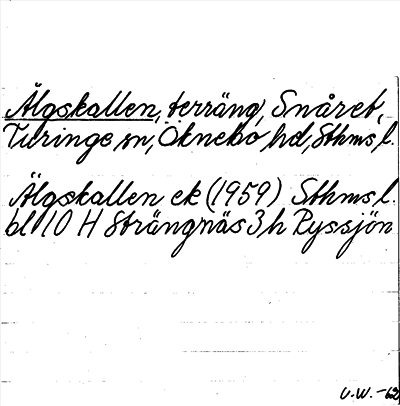 Älgskallen, terräng, Snåret,
Turinge sn, Öknebo hd, Sthms l.
Älgskallen ek (1959) Sthms l.
bl 10 H Strängnäs 3 h Ryssjön
V.W. -62